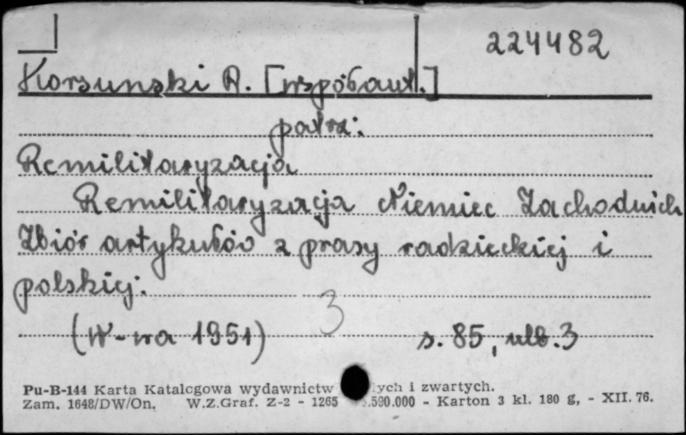 224482
Korsunski R. [współaut.]
patrz:
Remilitaryzacja
Remilitaryzacja Niemiec Zachodnich
Zbiór artykułów z prasy radzieckiej i
polskiej.
(W-wa 1951) 3 s. 85, nlb. 3
Pu-B-144 Karta Katalogowa wydawnictw ych i zwartych.
Zam. 1648/DW/On. W.Z.Graf. Z-2 - 1265 .590.000 - Karton 3 kl. 180 g, - XII. 76.